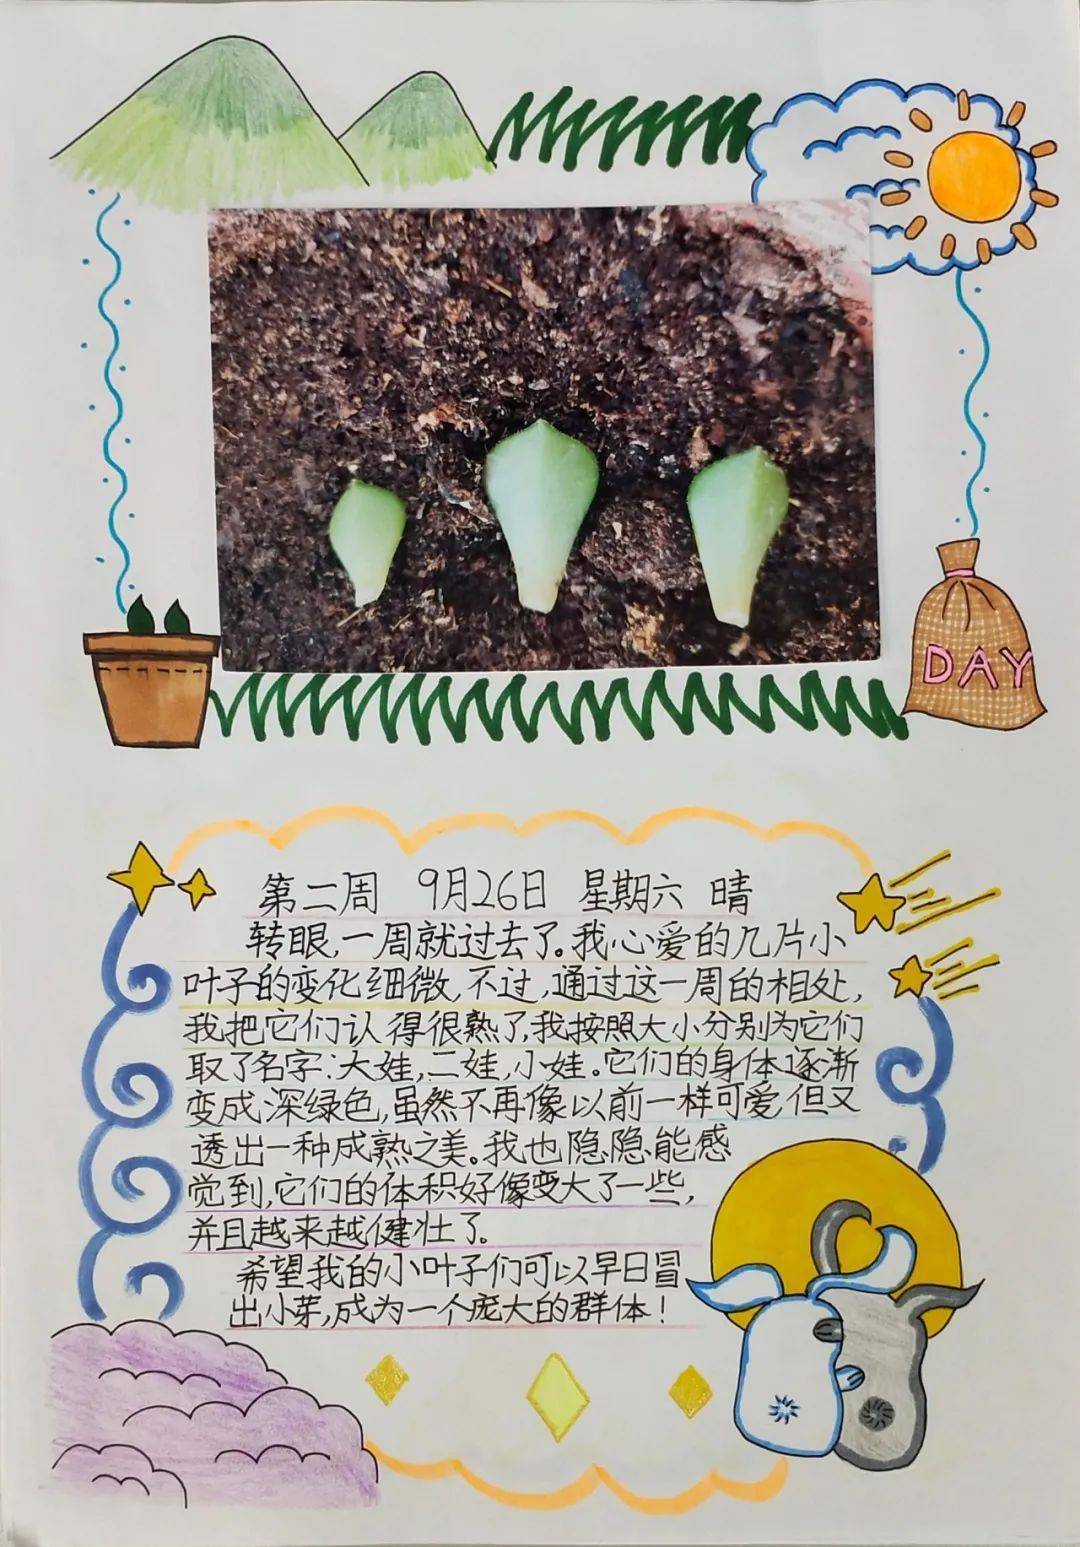 DAY
第二周 9月26日 星期六 晴
转眼,一周就过去了。我心爱的几片小
叶子的变化细微,不过,通过这一周的相处,
我把它们认得很熟了,我按照大小分别为它们
取了名字:大娃,二娃,小娃。它们的身体逐渐
变成深绿色,虽然不再像以前一样可爱,但又
透出一种成熟之美。我也隐隐能感
觉到,它们的体积好像变大了一些,
并且越来越健壮了。
希望我的小叶子们可以早日冒
出小芽,成为一个庞大的群体!